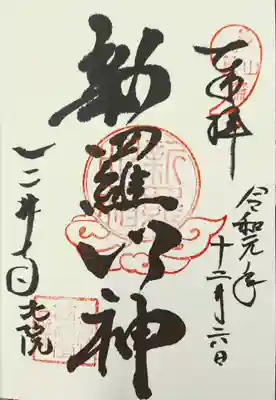 奉拝
令和元年
十二月六日
新羅明神
三井寺
北院